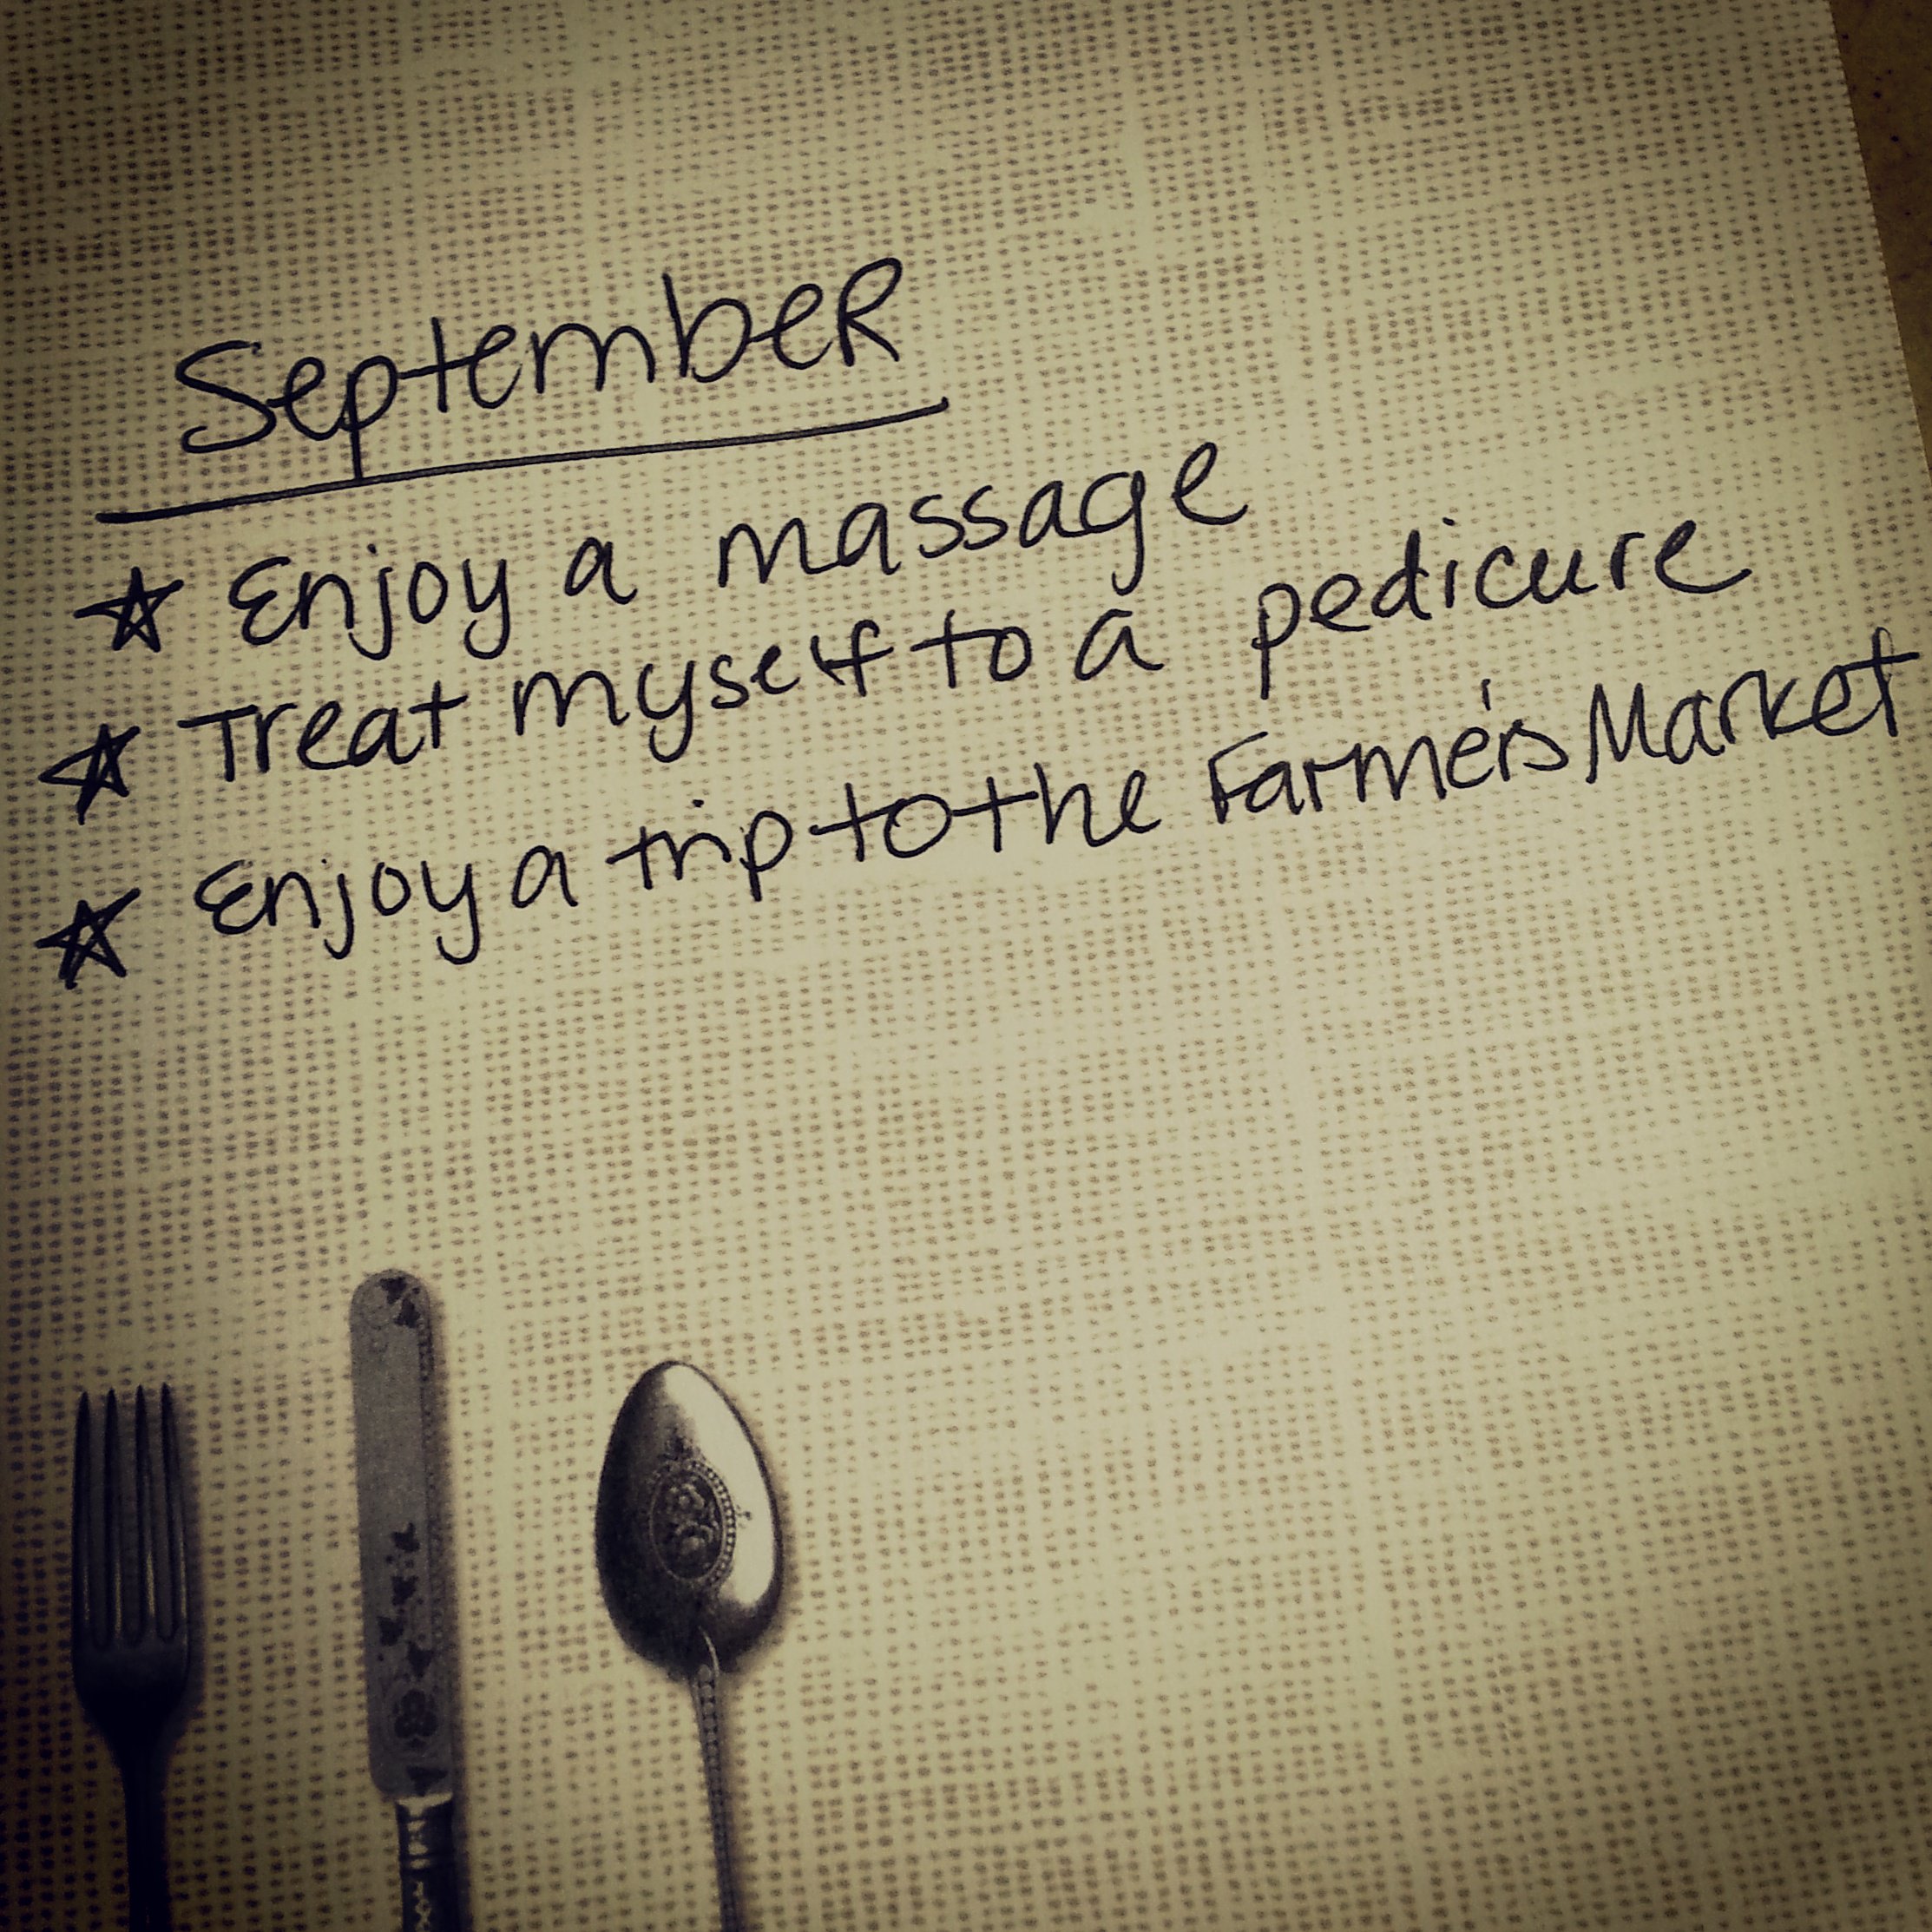 September
☆ Enjoy a massage
☆ Treat myself to a pedicure
☆ Enjoy a trip to the Farmer's Market